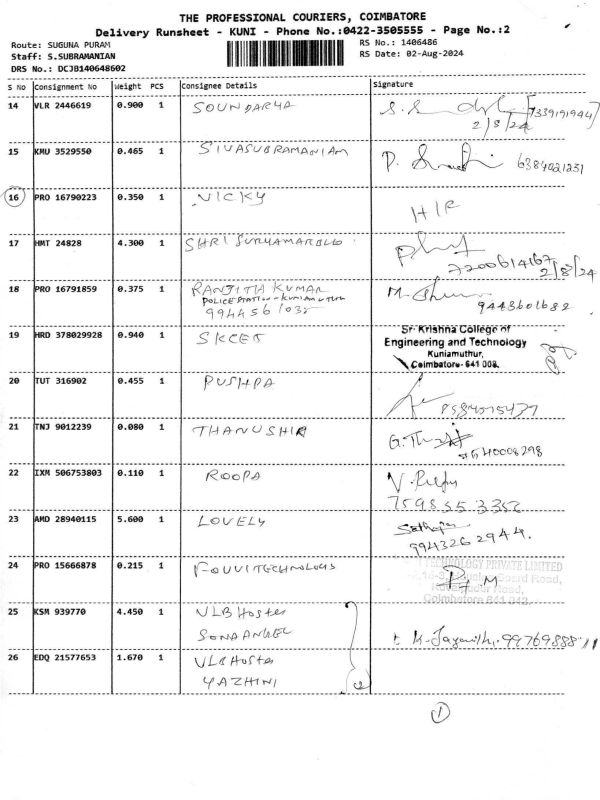 THE PROFESSIONAL COURIERS, COIMBATORE
Delivery Runsheet - KUNI - Phone No.:0422-3505555 - Page No.:2
Route: SUGUNA PURAM
Staff: S.SUBRAMANIAN
DRS No.: DCJB140648602
RS No.: 1406486
RS Date: 02-Aug-2024
S No Consignment No Weight PCS Consignee Details Signature
14 VLR 2446619 0.900 1 SOUNDARYA 7339191944
2/8/24
15 KMU 3529550 0.465 1 SIVASUBRAMANIAM 6384021231
16 PRO 16790223 0.350 1 VICKY H/R
17 HMT 24828 4.300 1 SHRI SURYAMARBLE
7200614167
2/8/24
18 PRO 16791859 0.375 1 RANJITH KUMAR
POLICE STATION - KUNIAMUTHUR
9443601682
19 HRD 378029928 0.940 1 SKCET
Sri Krishna College of
Engineering and Technology
Kuniamuthur,
Coimbatore- 641 008.
20 TUT 316902 0.455 1 PUSHPA
21 TNJ 9012239 0.080 1 THANUSHIA
22 IXM 506753803 0.110 1 ROOPA
7598553352
23 AMD 28940115 5.600 1 LOVELY
9943262944.
24 PRO 15666878 0.215 1 FOUVITECHNOLOGIS
TECHNOLOGY PRIVATE LIMITED
Road,
Road,
Coimbatore 641 042
25 KSM 939770 4.450 1 VLB Hostel
SONA ANGEL
K. Jayanthi. 9976988811
26 EDQ 21577653 1.670 1 VLB Hostel
YAZHINI
1